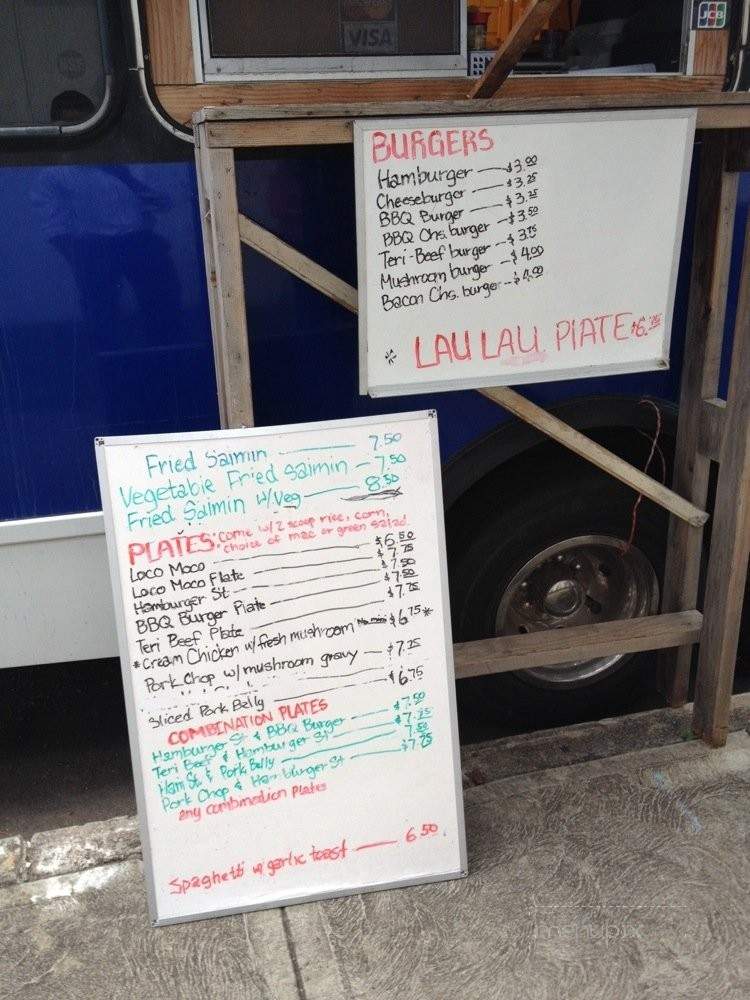 VISA
JCB
BURGERS
Hamburger $3.00
Cheeseburger $3.25
BBQ Burger $3.25
BBQ Chs. burger $3.50
Teri-Beef burger $3.75
Mushroom burger $4.00
Bacon Chs. burger $4.00
* LAU LAU PlATE $6.25
Fried Saimin 7.50
Vegetable Fried Saimin 7.50
Fried Saimin w/Veg 8.50
PLATES: Come w/2 scoop rice, corn,
choice of mac or green salad
Loco Moco $6.50
Loco Moco Plate $7.75
Hamburger St $7.50
BBQ Burger Plate $7.50
Teri Beef Plate $7.75
*Cream Chicken w/fresh mushroom $6.75*
Pork Chop w/mushroom gravy $7.25
Sliced Pork Belly $6.75
COMBINATION PLATES
Hamburger St & BBQ Burger $7.50
Teri Beef & Hamburger St $7.75
Ham St & Pork Belly 7.50
Pork Chop & Hamburger St $7.75
any combination plates
Spaghetti w/garlic toast 6.50
menupix